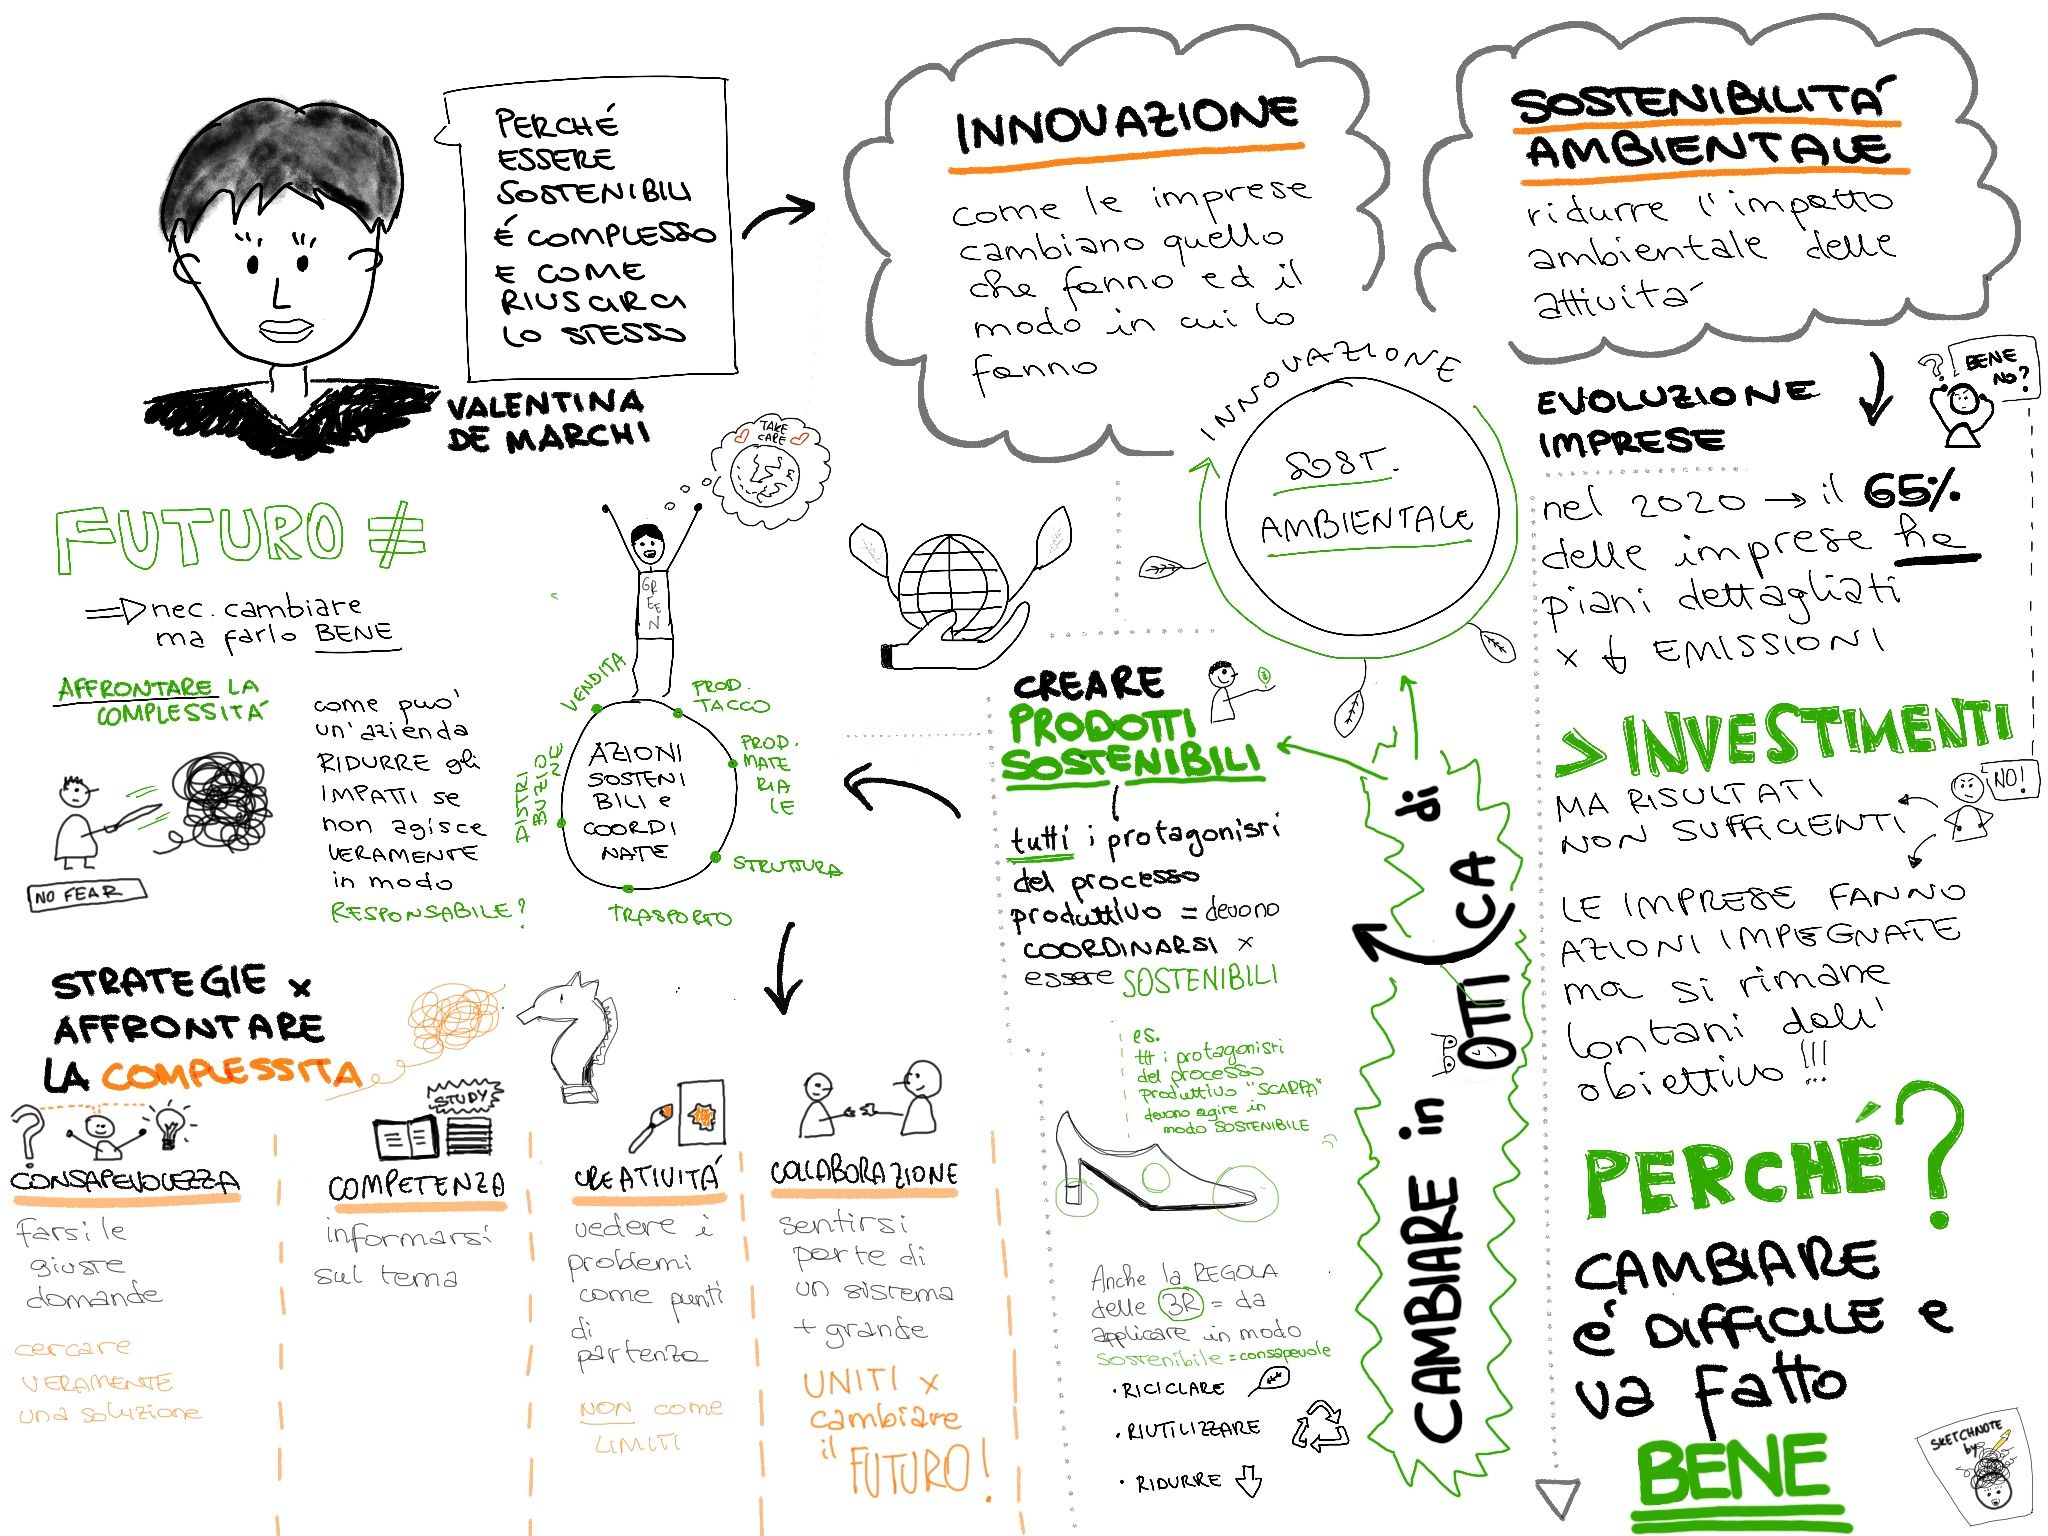 PERCHÉ
ESSERE
SOSTENIBILI
É COMPLESSO
E COME
RIUSCIRCI
LO STESSO
VALENTINA
DE MARCHI
INNOVAZIONE
come le imprese
cambiano quello
che fanno ed il
modo in cui lo
fanno
SOSTENIBILITÁ
AMBIENTALE
ridurre l'impatto
ambientale delle
attivitá
INNOVAZIONE
SOST.
AMBIENTALE
EVOLUZIONE
IMPRESE
BENE
NO?
nel 2020 → il 65%
delle imprese ha
piani dettagliati
x ↓ EMISSIONI
> INVESTIMENTI
MA RISULTATI
NON SUFFICIENTI
NO!
LE IMPRESE FANNO
AZIONI IMPEGNATE
ma si rimane
lontani dall'
obiettivo !!!
PERCHÉ?
CAMBIARE
é DIFFICILE e
va fatto
BENE
SKETCHNOTE
by
CAMBIARE in OTTICA di
CREARE
PRODOTTI
SOSTENIBILI
tutti i protagonisri
del processo
produttivo = devono
COORDINARSI x
essere SOSTENIBILI
es.
ttt i protagonisti
del processo
produttivo "SCARPA"
devono agire in
modo SOSTENIBILE
Anche la REGOLA
delle 3R = da
applicare in modo
sostenibile = consapevole
• RICICLARE
• RIUTILIZZARE
• RIDURRE
TAKE
CARE
GREEN
AZIONI
SOSTENI
BILI e
COORDI
NATE
VENDITA
PROD.
TACCO
PROD.
MATE
RIA
LE
STRUTTURA
TRASPORTO
DISTRI
BUZIONE
FUTURO ≠
⇒ nec. cambiare
ma farlo BENE
AFFRONTARE LA
COMPLESSITÁ
NO FEAR
come puo'
un'azienda
RIDURRE gli
IMPATTI se
non agisce
VERAMENTE
in modo
RESPONSABILE?
STRATEGIE x
AFFRONTARE
LA COMPLESSITA
CONSAPEVOLEZZA
farsi le
giuste
domande
cercare
VERAMENTE
una soluzione
STUDY
COMPETENZA
informarsi
sul tema
CREATIVITÁ
vedere i
problemi
come punti
di
partenza
NON come
LIMITI
COLLABORAZIONE
sentirsi
parte di
un sistema
+ grande
UNITI x
cambiare
il FUTURO!